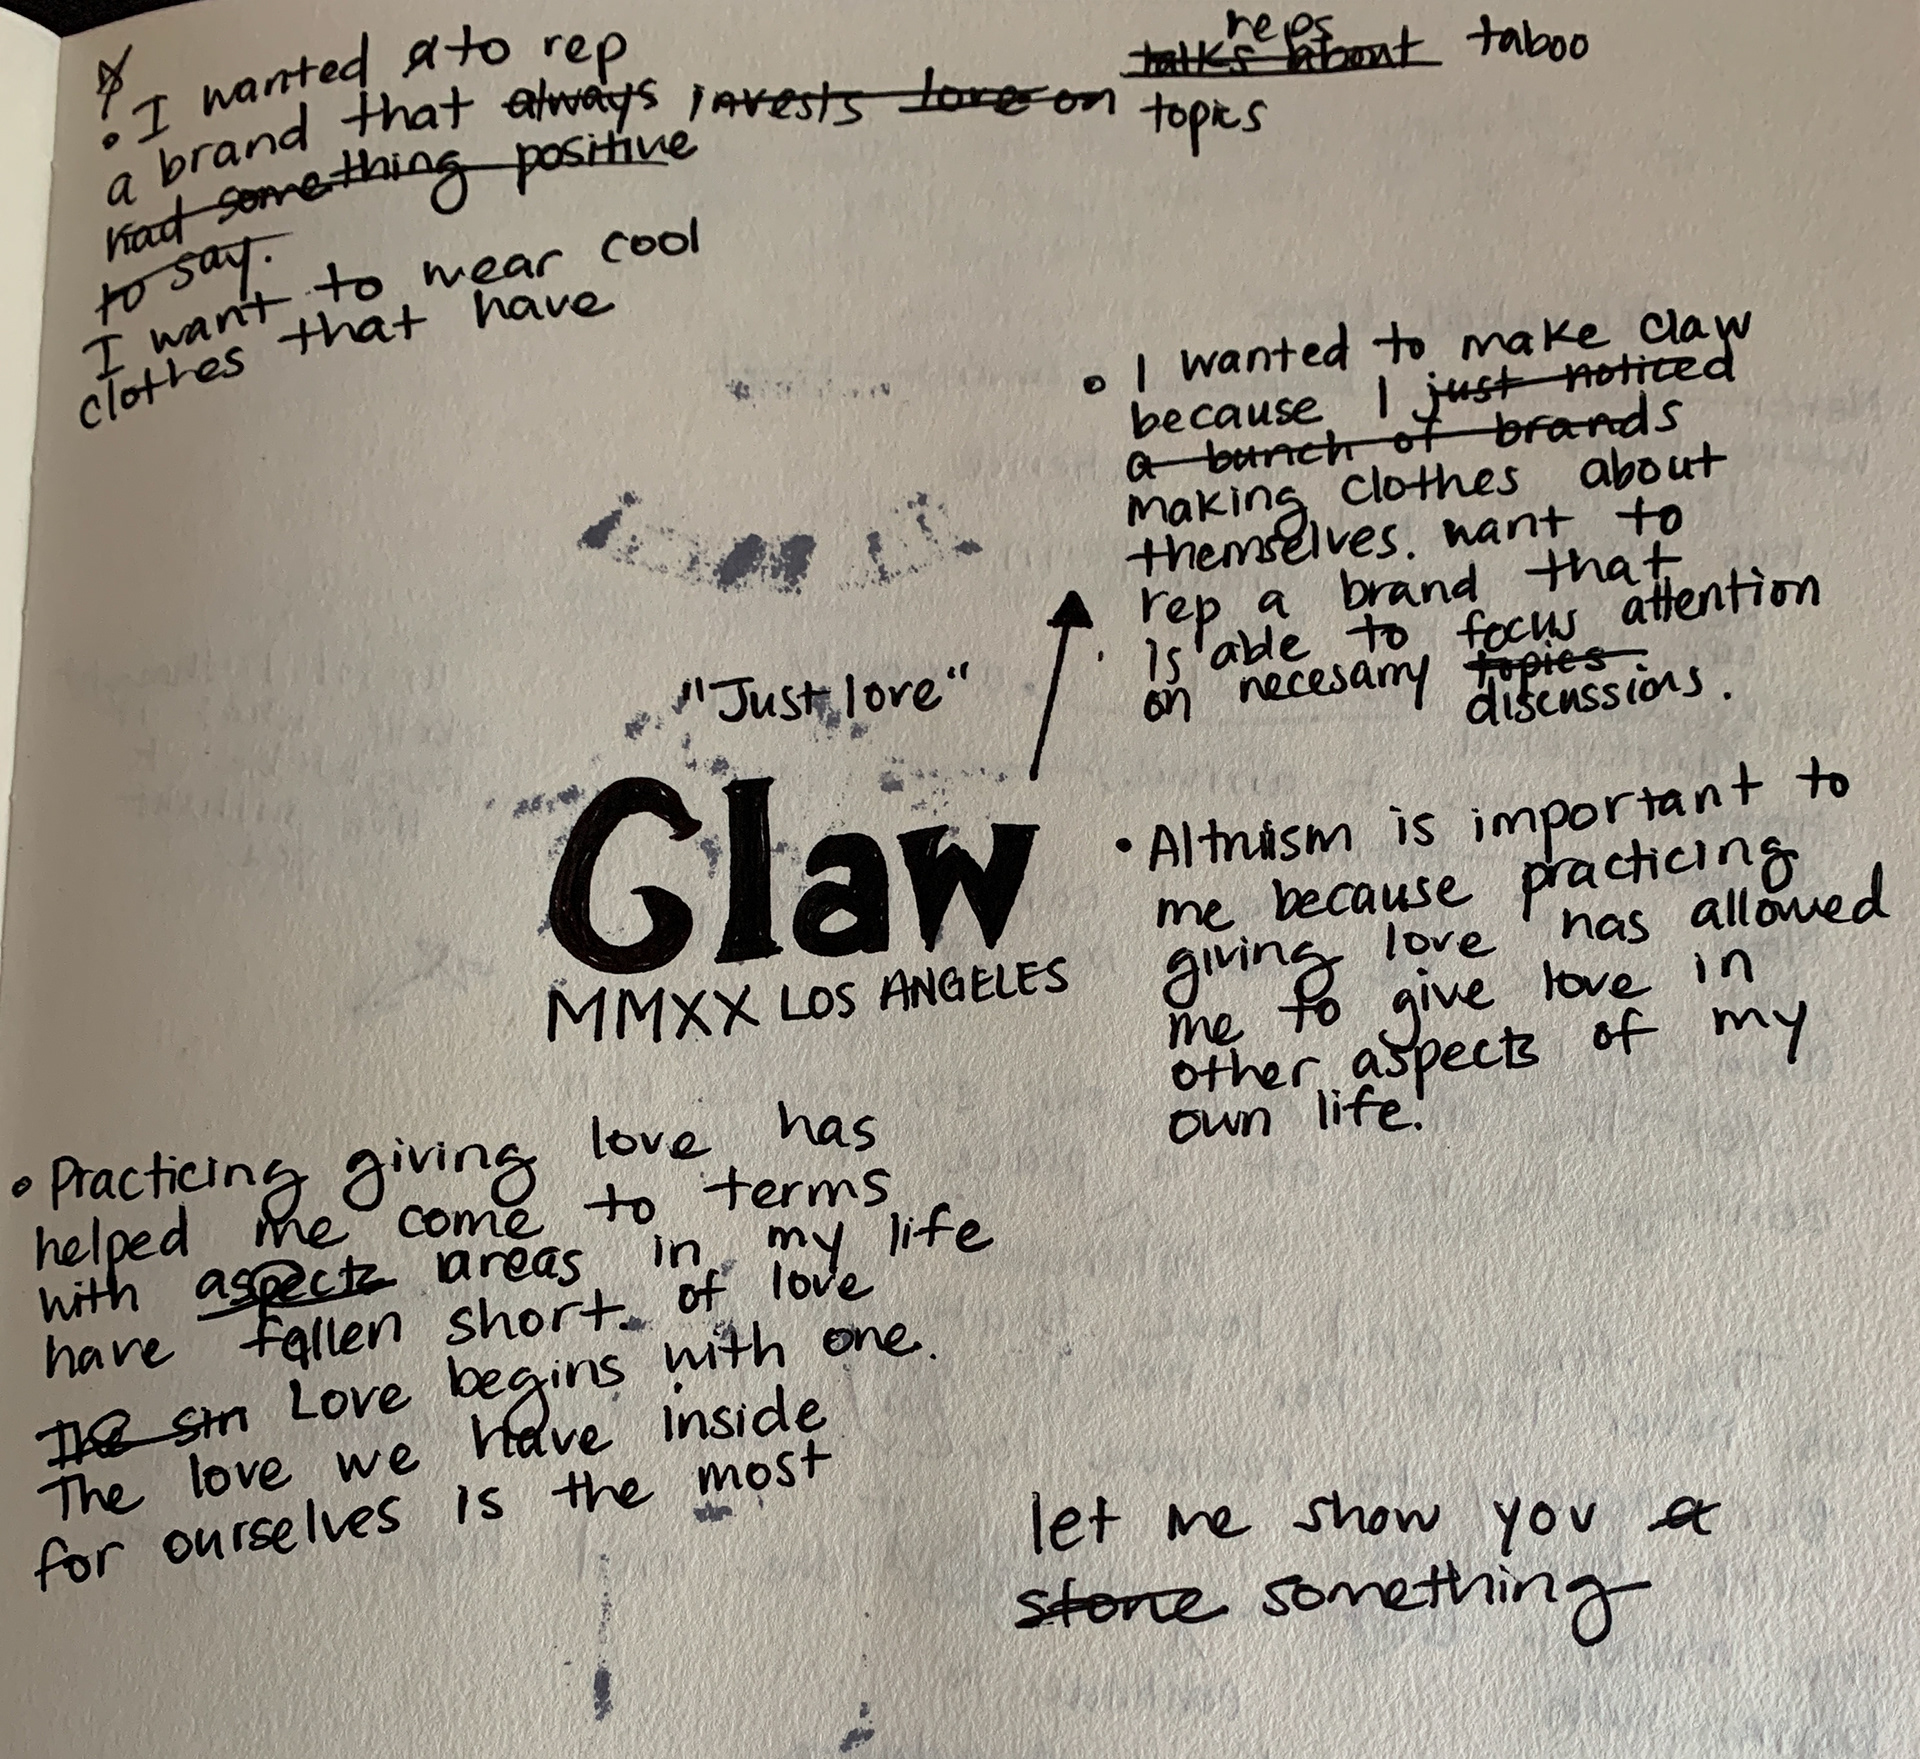 I wanted a to rep
a brand that always invests love on
had something positive
to say.
I want to wear cool
clothes that have
reps
talks about taboo
topics
I wanted to make claw
because I just noticed
a bunch of brands
making clothes about
themselves. want to
rep a brand that
is able to focus attention
on necesarry topics
discussions.
"Just love"
Claw
MMXX LOS ANGELES
• Altruism is important to
me because practicing
giving love has allowed
me to give love in
other aspects of my
own life.
• Practicing giving love has
helped me come to terms
with aspects areas in my life
have fallen short. of love
The sin Love begins with one.
The love we have inside
for ourselves is the most
let me show you a
stone something